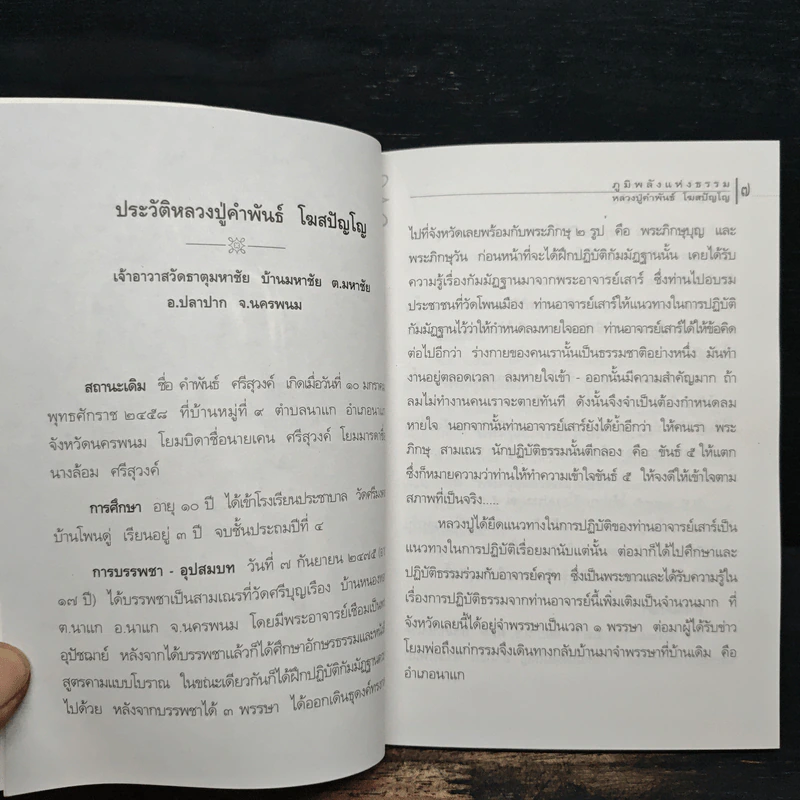 ประวัติหลวงปู่คำพันธ์ โฆสปัญโญ
เจ้าอาวาสวัดธาตุมหาชัย บ้านมหาชัย ต.มหาชัย
อ.ปลาปาก จ.นครพนม
สถานะเดิม ชื่อ คำพันธ์ ศรีสุวงค์ เกิดเมื่อวันที่ ๑๐ มกราคม
พุทธศักราช ๒๔๕๘ ที่บ้านหมู่ที่ ๙ ตำบลนาแก อำเภอนาแก
จังหวัดนครพนม โยมบิดาชื่อนายเคน ศรีสุวงค์ โยมมารดาชื่อ
นางล้อม ศรีสุวงค์
การศึกษา อายุ ๑๐ ปี ได้เข้าโรงเรียนประชาบาล
บ้านโพนตู่ เรียนอยู่ ๓ ปี จบชั้นประถมปีที่ ๔
การบรรพชา - อุปสมบท วันที่ ๗ กันยายน ๒๔๗๕
๑๗ ปี) ได้บรรพชาเป็นสามเณรที่วัดศรีบุญเรือง
ต.นาแก อ.นาแก จ.นครพนม โดยมีพระอาจารย์เชื่อมเป็นพระ
อุปัชฌาย์ หลังจากได้บรรพชาแล้วก็ได้ศึกษาอักษรธรรมและหนังสือ
สูตรตามแบบโบราณ ในขณะเดียวกันก็ได้ฝึกปฏิบัติกัมมัฏฐาน
ไปด้วย หลังจากบรรพชาได้ ๓ พรรษา ได้ออกเดินธุดงค์
ภูมิพลังแห่งธรรม
หลวงปู่คำพันธ์ โฆสปัญโญ
๗
ไปที่จังหวัดเลยพร้อมกับพระภิกษุ ๒ รูป คือ พระภิกษุบุญ และ
พระภิกษุวัน ก่อนหน้าที่จะได้ฝึกปฏิบัติกัมมัฏฐานนั้น เคยได้รับ
ความรู้เรื่องกัมมัฏฐานมาจากพระอาจารย์เสาร์ ซึ่งท่านไปอบรม
ประชาชนที่วัดโพนเมือง ท่านอาจารย์เสาร์ให้แนวทางในการปฏิบัติ
กัมมัฏฐานไว้ว่าให้กำหนดลมหายใจออก ท่านอาจารย์เสาร์ได้ให้ข้อคิด
ต่อไปอีกว่า ร่างกายของคนเรานั้นเป็นธรรมชาติอย่างหนึ่ง มันทำ
งานอยู่ตลอดเวลา ลมหายใจเข้า - ออกนั้นมีความสำคัญมาก ถ้า
ลมไม่ทำงานคนเราจะตายทันที ดังนั้นจึงจำเป็นต้องกำหนดลม
หายใจ นอกจากนั้นท่านอาจารย์เสาร์ยังได้ย้ำอีกว่า ให้คนเรา พระ
ภิกษุ สามเณร นักปฏิบัติธรรมนั้นตีกลอง คือ ขันธ์ ๕ ให้แตก
ซึ่งก็หมายความว่าท่านให้ทำความเข้าใจขันธ์ ๕ ให้จงดีให้เข้าใจตาม
สภาพที่เป็นจริง.....
หลวงปู่ได้ยึดแนวทางในการปฏิบัติของท่านอาจารย์เสาร์เป็น
แนวทางในการปฏิบัติเรื่อยมานับแต่นั้น ต่อมาก็ได้ไปศึกษาและ
ปฏิบัติธรรมร่วมกับอาจารย์ครุฑ ซึ่งเป็นพระชาวและได้รับความรู้ใน
เรื่องการปฏิบัติธรรมจากท่านอาจารย์นี้เพิ่มเติมเป็นจำนวนมาก ที่
จังหวัดเลยนี้ได้อยู่จำพรรษาเป็นเวลา ๑ พรรษา ต่อมาผู้ได้รับข่าว
โยมพ่อถึงแก่กรรมจึงเดินทางกลับบ้านมาจำพรรษาที่บ้านเดิม คือ
อำเภอนาแก